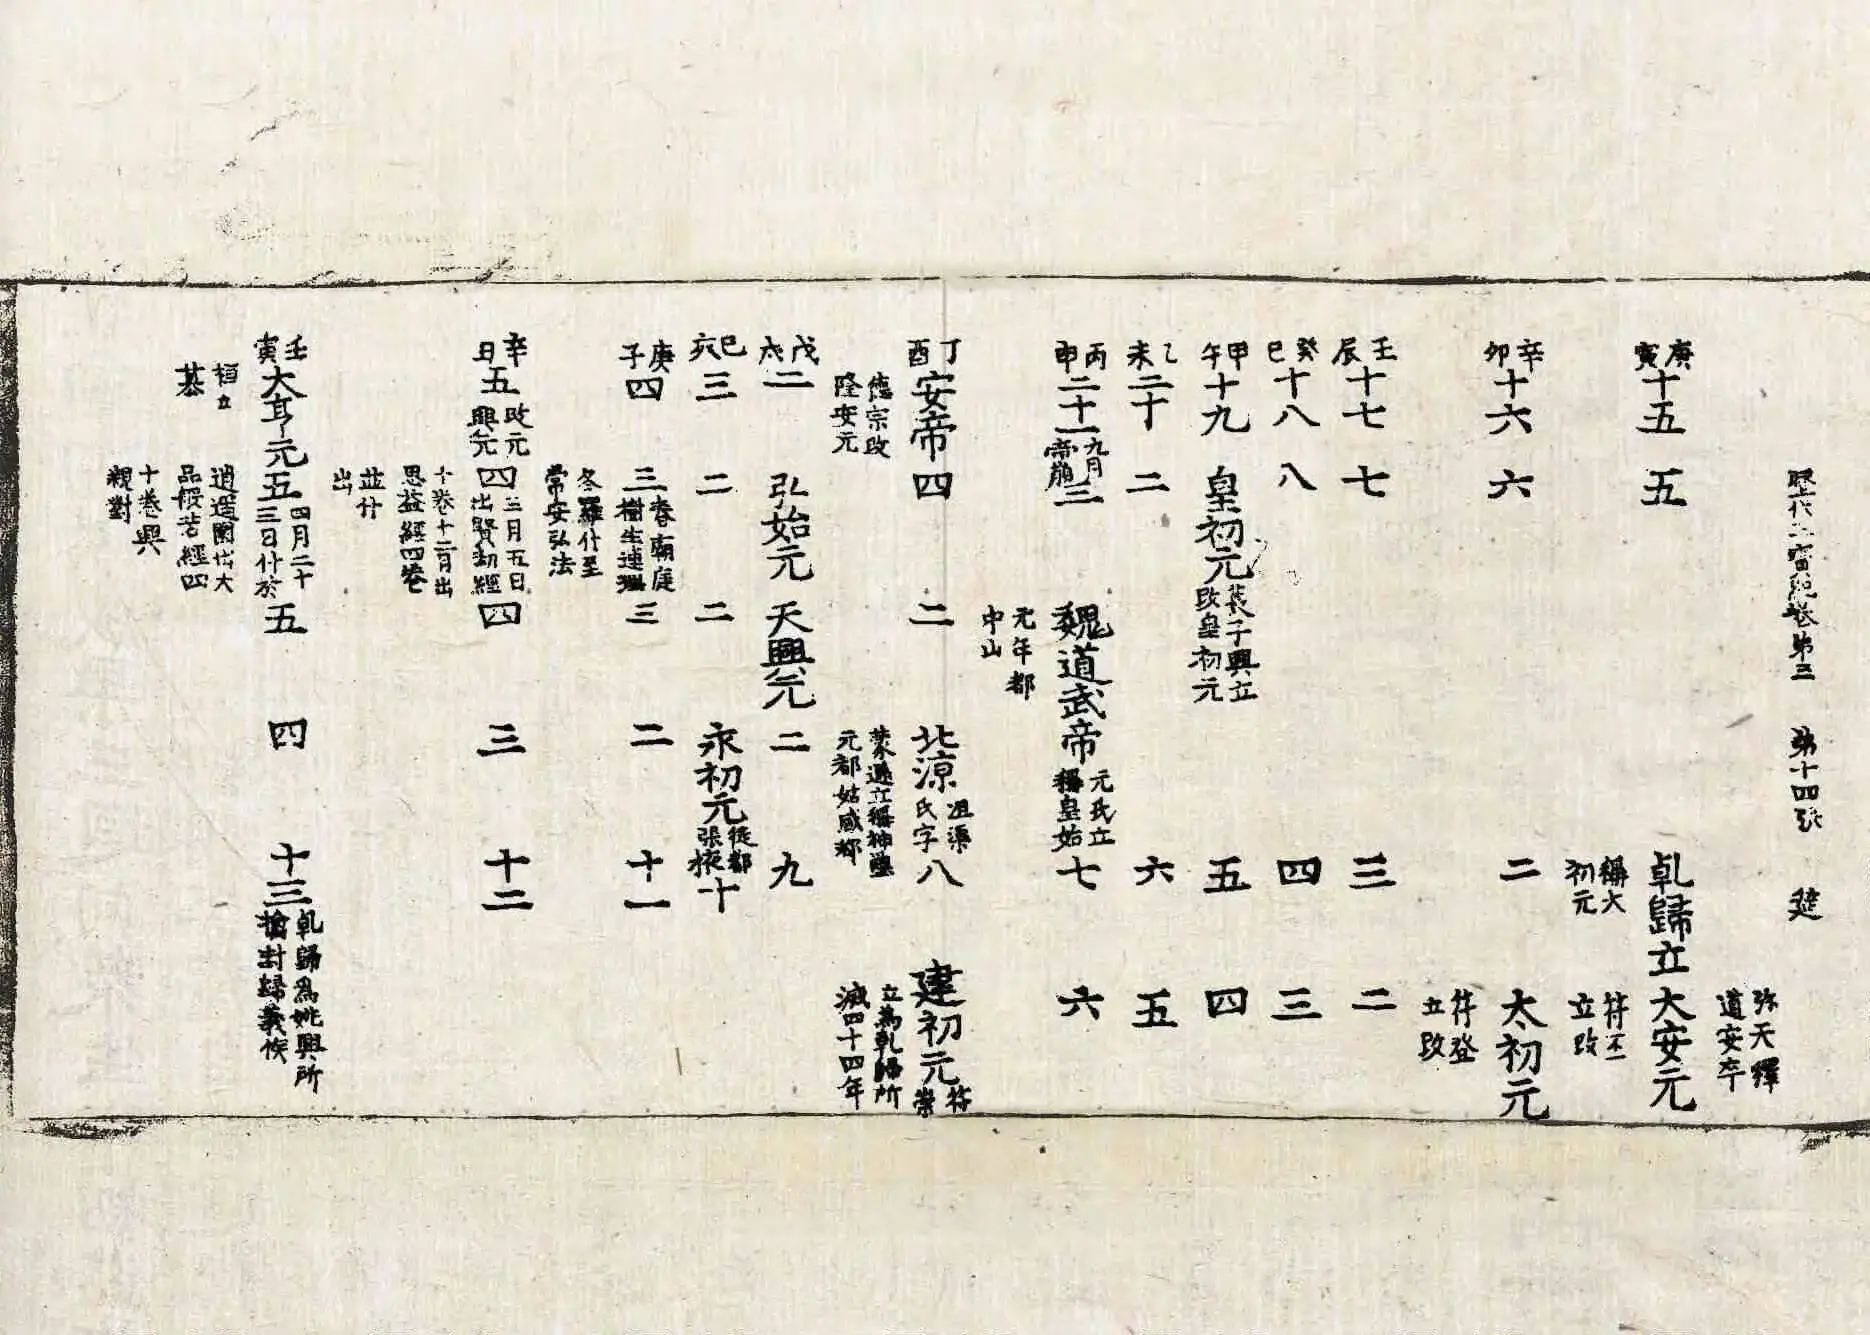 歷代三寶紀卷第三 第十四張
弥天釋
道安卒
庚寅十五 五 乹歸立 大安元
稱大 苻丕
初元 立改
辛卯十六 六 二 太初元
苻登
立改
壬辰十七 七 三 二
癸巳十八 八 四 三
甲午十九 皇初元 萇子興立 改皇初元 五 四
乙未二十 二 六 五
丙申二十一 九月 帝崩 三 魏道武帝 元氏立 稱皇始 七 六
元年都
中山
丁酉安帝 四 二 北涼 沮渠 氏字 八 建初元 苻 崇
德宗改 蒙遜立稱神璽 立為乹歸所
隆安元 元都姑臧都 滅四十四年
戊戌二 弘始元 天興元 二 九
己亥三 二 二 永初元 徙都 張掖 十
庚子四 三 春廟庭 樹生連理 三 二 十一
冬羅什至
常安弘法
辛丑五 改元 興元 四 三月五日 出賢劫經 四 三 十二
十卷十二月出
思益經四卷
並什
出
壬寅大亨元 五 四月二十 三日什於 五 四 十三 乹歸為姚興所 擒封歸義侯
桓立 逍遥園出大
品般若經四
十卷興
親對